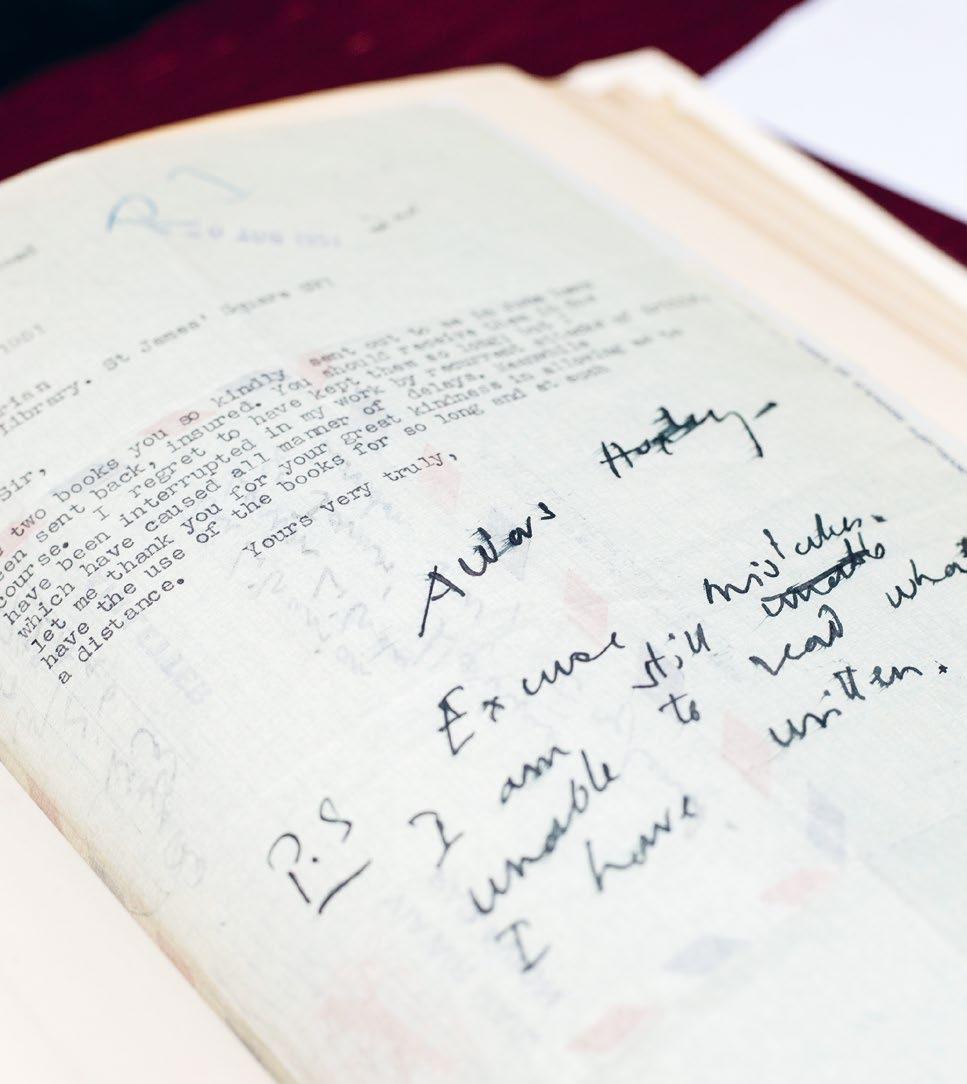 R I
AUG 1951
1951
Library. St James' Square SW1
Sir,
two books you so kindly sent out to me
sent back, insured. You should receive them in
course. I regret to have kept them so long; but I
have been interrupted in my work by recurrent attacks of
which have caused all manner of delays. Meanwhile
let me thank you for your great kindness in allowing me to
have the use of the books for so long and at such
a distance.
Yours very truly,
Aldous Huxley
P.S Excuse mistakes.
I am still unable
unable to read what
I have written.